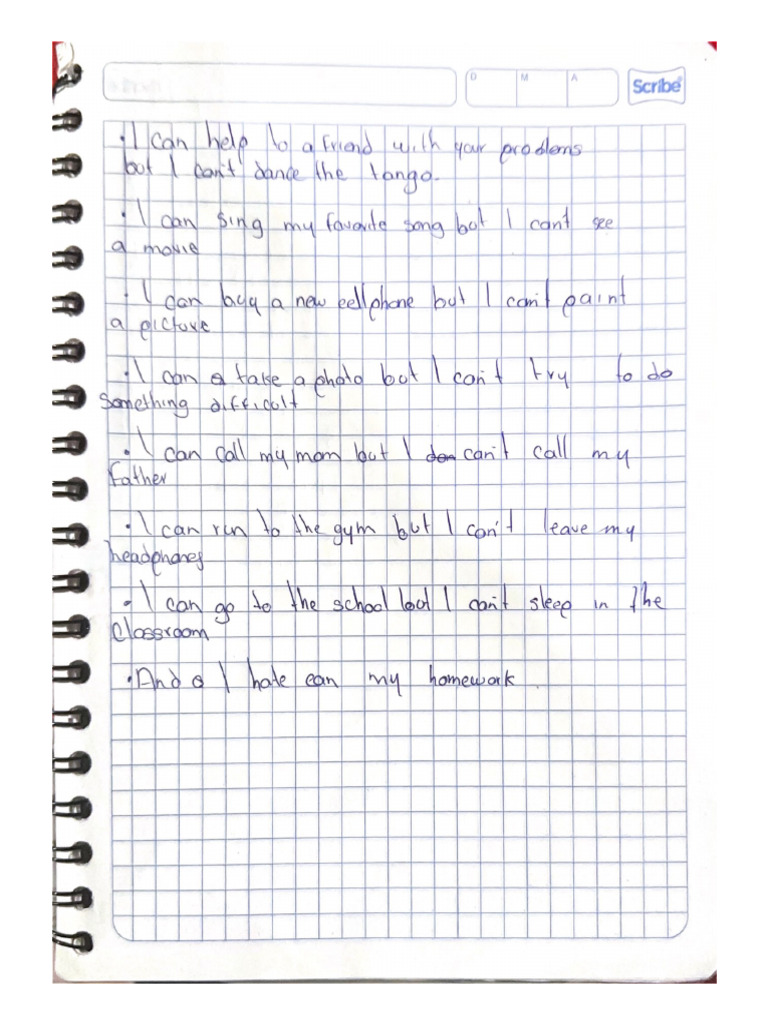 D M A Scribe
• I can help to a friend with your problems
but I can't dance the tango.
• I can sing my favorite song but I can't see
a movie
• I can buy a new cellphone but I can't paint
a picture
• I can take a photo but I can't try to do
something difficult
• I can call my mom but I can't call my
father
• I can run to the gym but I can't leave my
headphones
• I can go to the school but I can't sleep in the
classroom
• And I hate can my homework.